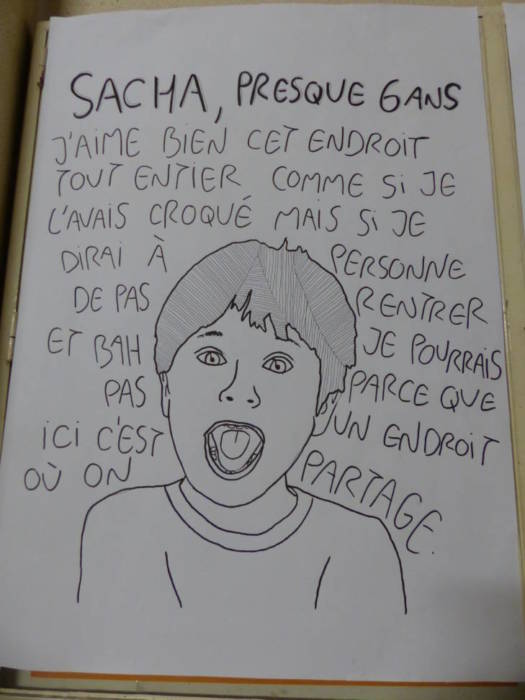 SACHA, PRESQUE 6 ANS
J'AIME BIEN CET ENDROIT
TOUT ENTIER COMME SI JE
L'AVAIS CROQUÉ MAIS SI JE
DIRAI À PERSONNE
DE PAS RENTRER
ET BAH JE POURRAIS
PAS PARCE QUE
ICI C'EST UN ENDROIT
OÙ ON PARTAGE.